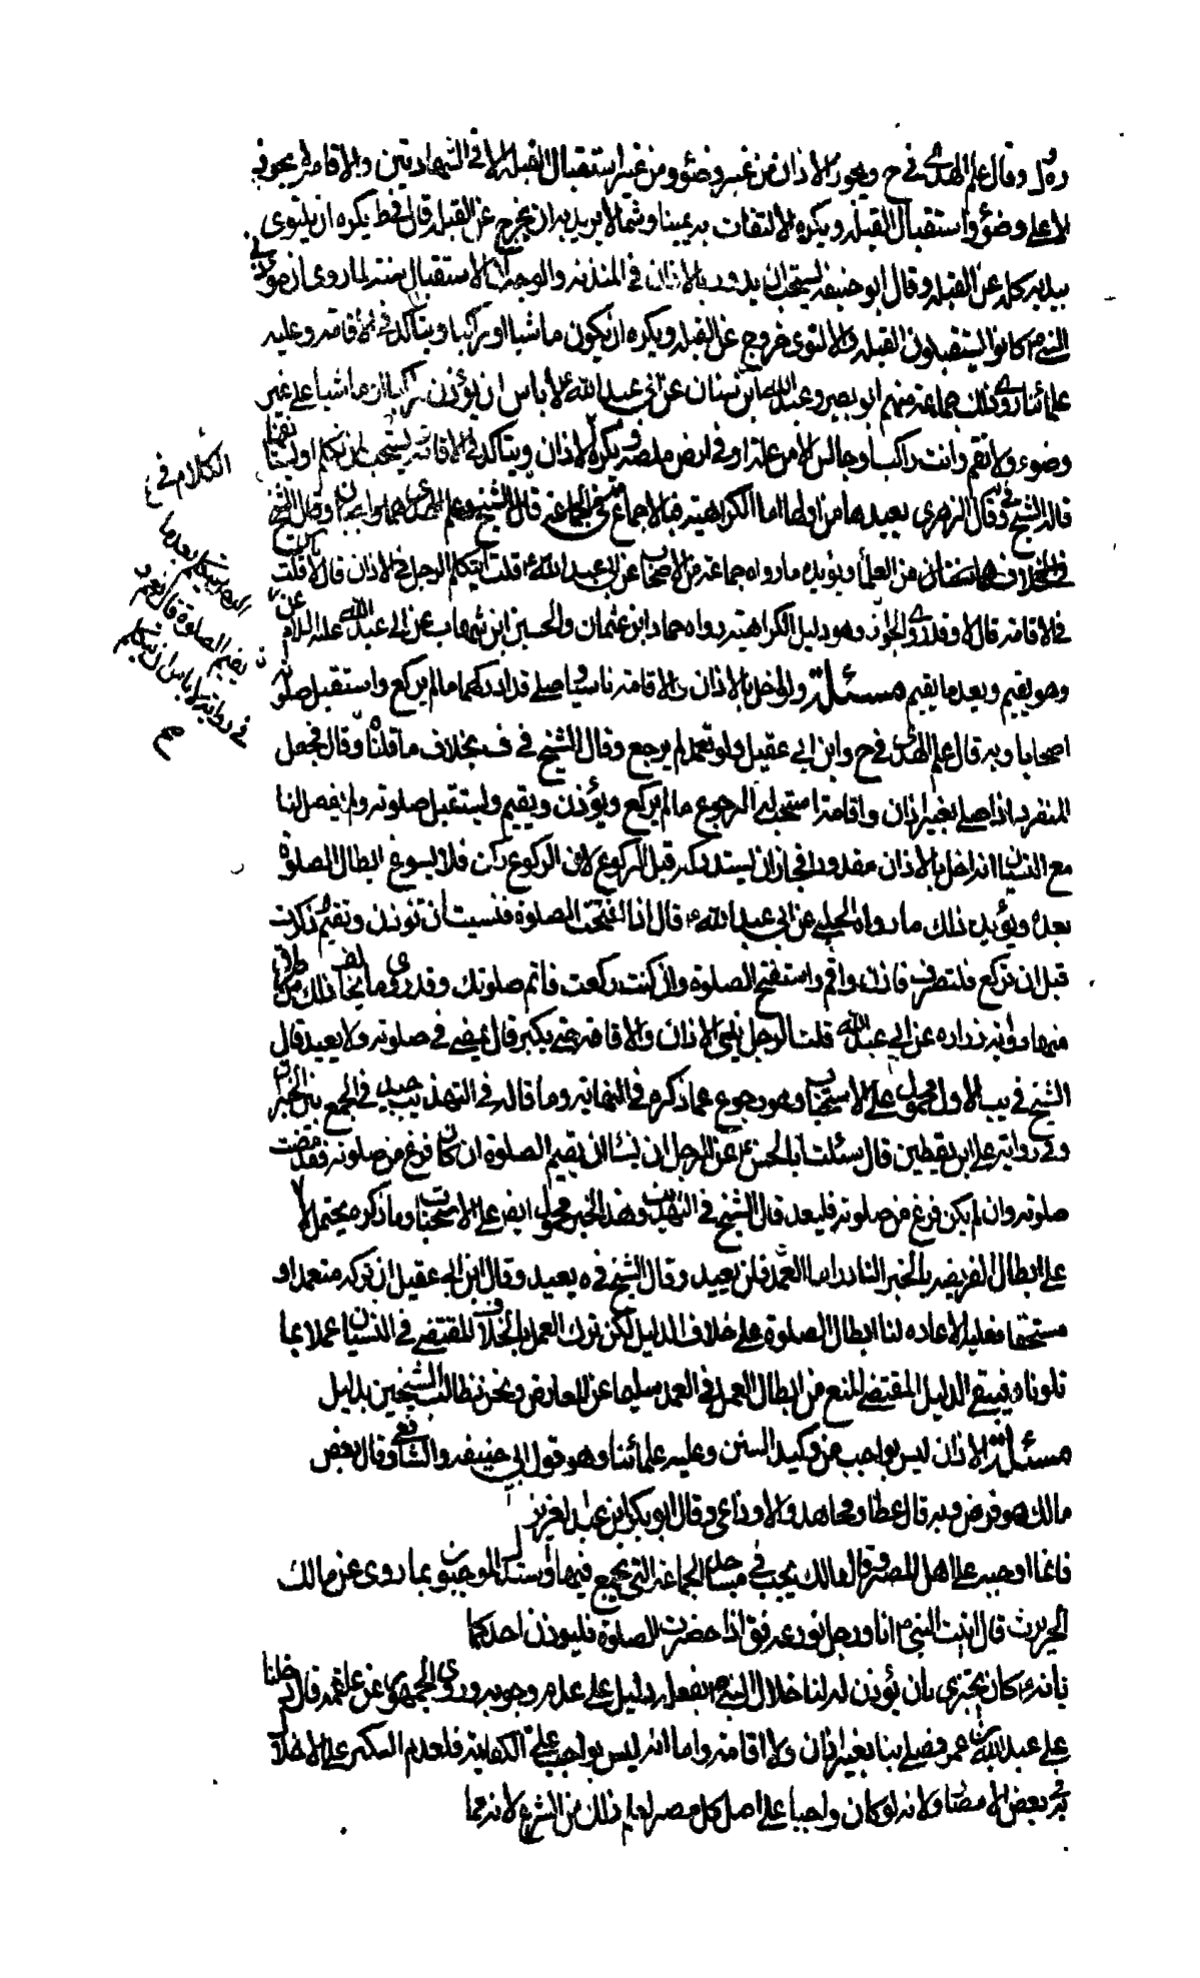 وقال علم الهدى في ح ويجوز الاذان من غير وضوء ومن غير استقبال القبلة الا في الشهادتين والاقامة لا يجوز
الا على وضوء واستقبال القبلة ويكره الالتفات به يمينا وشمالا يريد به ان يخرج عن القبلة قال في ط يكره ان يلتوى
ببدنه كله عن القبلة وقال ابو حنيفة يستحب ان يدور بالاذان في المئذنة والوجه ان الاستقبال سنة لما روى ان مؤذنى
النبي ص كانوا يستقبلون القبلة والالتوى خروج عن القبلة ويكره ان يكون ماشيا او راكبا ويتاكد في الاقامة وعليه
علمائنا روى ذلك جماعة منهم ابو بصير وعبد الله ابن سنان عن ابي عبد الله ع لا باس ان يؤذن راكبا او ماشيا على غير
وضوء ولا تقم وانت راكب او جالس الا من علة او في ارض ملصة ويكره الاذان ويتاكد في الاقامة
قاله الشيخ في وقال الزهرى يعيدها من اولها اما الكراهية فبالاجماع قال الشيخ وعلم الهدى
من العلماء ويؤيده ما رواه جماعة من الاصحاب عن ابي عبد الله ع قلت ايتكلم الرجل في الاذان قال لا قلت
في الاقامة قال لا وقد روى الجواز وهو دليل الكراهية رواه حماد ابن عثمان والحسين ابن شهاب عن ابي عبد الله عليه السلام
وهو يقيم وبعد ما يقيم مسئلة ولو اخل بالاذان والاقامة ناسيا وصلى تداركهما ما لم يركع واستقبل صلوته
اصحابنا وبه قال علم الهدى في ح وابن ابي عقيل ولو تعمد لم يرجع وقال الشيخ في ف بخلاف ما قلناه وقال فجعل
المنفرد اذا صلى بغير اذان واقامة استحب له الرجوع ما لم يركع ويؤذن ويقيم ويستقبل صلوته ولم يفصل لنا
مع النسيان انه اخل بالاذان مقدورا فجاز ان يستدركه قبل الركوع لان الركوع ركن فلا يسوغ ابطال الصلوة
بعده ويؤيد ذلك ما رواه الحلبي عن ابي عبد الله ع قال اذا افتتحت الصلوة فنسيت ان تؤذن وتقيم ثم ذكرت
قبل ان تركع فانصرف فاذن واقم واستفتح الصلوة وان كنت ركعت فاتم صلوتك وقد روى ما يخالف ذلك من طرق
منها رواية زراره عن ابي عبد الله قلت الرجل ينسى الاذان والاقامة حتى يكبر قال يمضى في صلوته ولا يعيد قال
الشيخ في يب الاول محمول على الاستحباب وهو رجوع عما ذكره في النهاية وما قاله في التهذيب جيد في الجمع بين الخبرين
وفي رواية على ابن يقطين قال سئلت ابا الحسن ع عن الرجل ان ينسى ان يقيم الصلوة ان كان فرغ من صلوته فقد مضت
صلوته وان لم يكن فرغ من صلوته فليعد قال الشيخ في التهذيب وهذا الخبر محمول ايضا على الاستحباب وما ذكره محتمل لا
على ابطال الفريضه بالخبر النادر اما العمد فلن يعيد وقال الشيخ في ه يعيد وقال ابن ابي عقيل ان تركه متعمدا او
مستخفا فعليه الاعاده لنا ابطال الصلوة على خلاف الدليل لكن ترك العمل بالخلاف المقتضى في النسيان عملا بما
تلوناه فيبقى الدليل المقتضى للمنع من ابطال العمل في العمد سليما عن المعارض ونحن نطالب الشيخين بدليل
مسئلة الاذان ليس بواجب من وكيد السنن وعليه علمائنا وهو قول ابي حنيفه والشافعى وقال بعض
مالك هو فرض وبه قال عطا ومجاهد والاوزاعي وقال ابو بكر ابن عبد العزيز
فانما اوجبه على اهل المصر وقال مالك يجب في مساجد الجماعة التي يجمع فيها واستدل الموجبون بما روى عن مالك
الحريرث قال اتيت النبي ص انا ورجل نودعه فق اذا حضرت الصلوة فليؤذن احدكما
بانه ع كان يجتزى بان يؤذن له لنا اخلال النبي ص بفعله دليل على عدم وجوبه وروى الجمهور عن علقمه قال دخلنا
على عبد الله بن عمر فصلى بنا بغير اذان ولا اقامة واما انه ليس بواجب على الكفاية فلعدم النكير على الاخلال
به في بعض الامصار ولانه لو كان واجبا على اهل كل مصر لعلم ذلك من الشرع لانه مما
الكلام في
يتكلم بعد ما
يقيم الصلوة قال نعم و
في رواية لا باس ان يتكلم